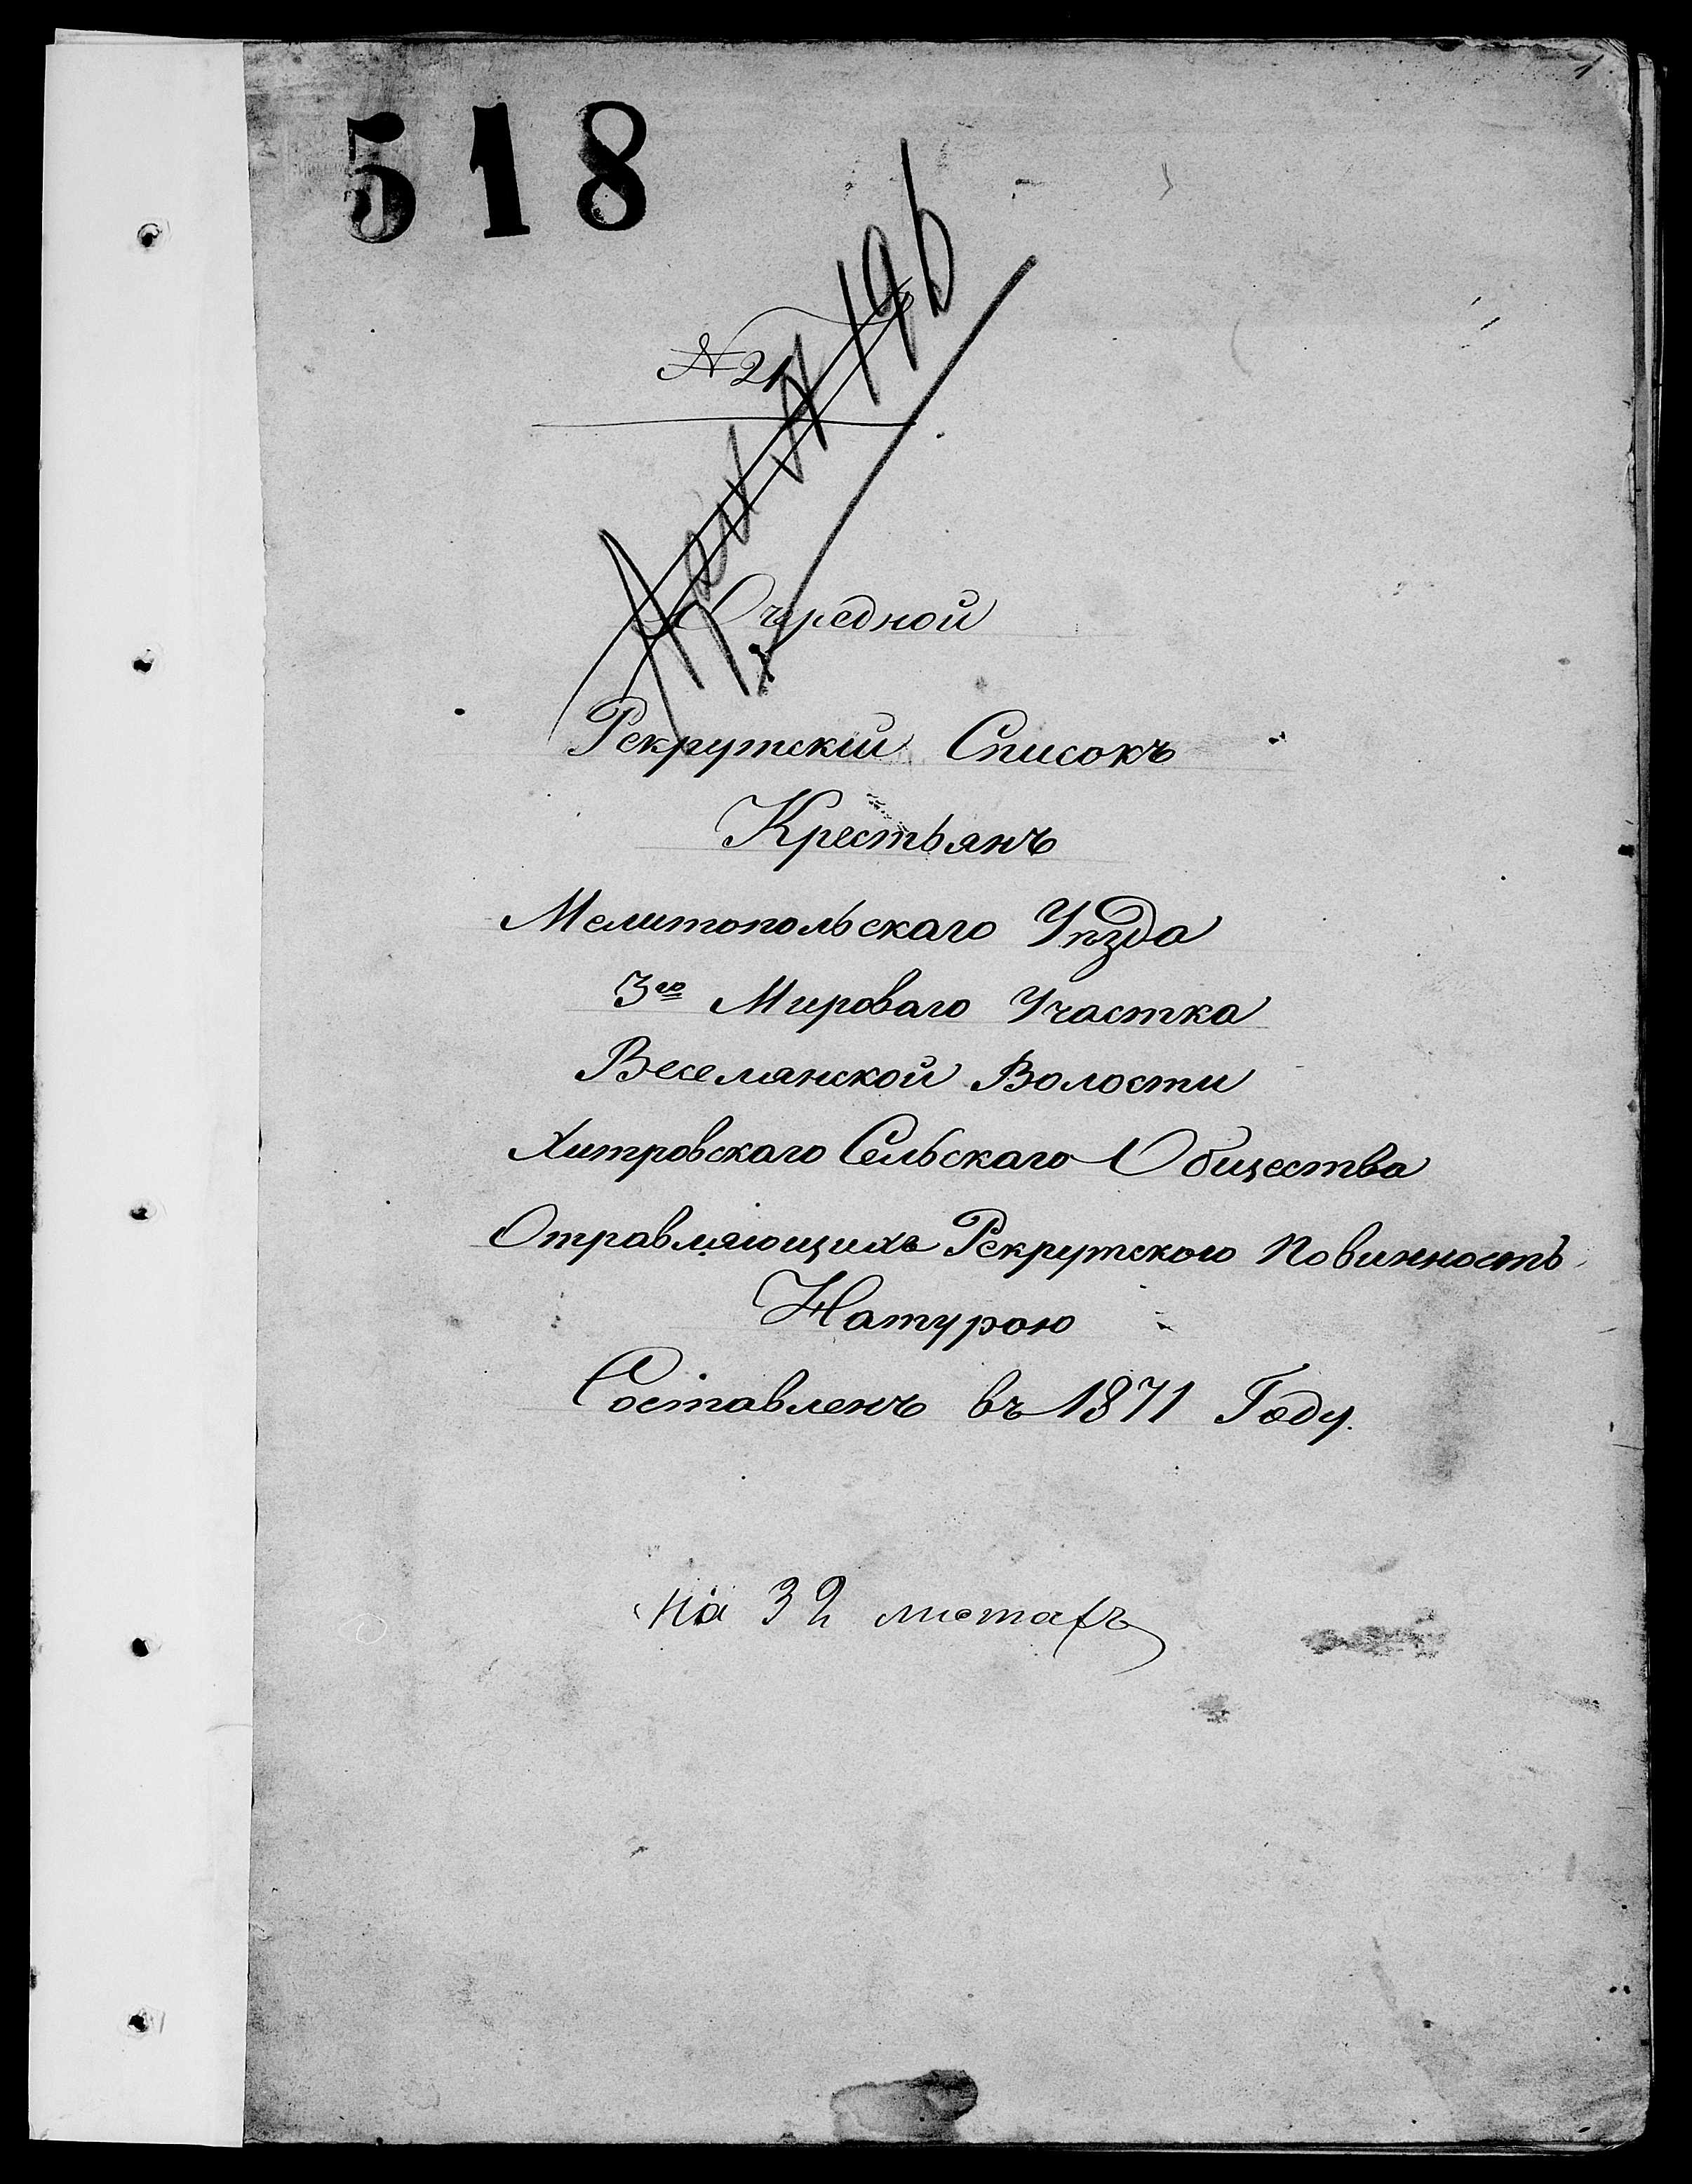 1
518
№ 21
Очередной
Рекрутскій Списокъ
Крестьянъ
Мелитопольскаго Уѣзда
3го Мироваго Участка
Веселянской Волости
Хитровскаго Сельскаго Общества
Отравляющихъ Рекрутскою Повинность
Натурою
Составленъ въ 1871 Году.
на 32 листахъ